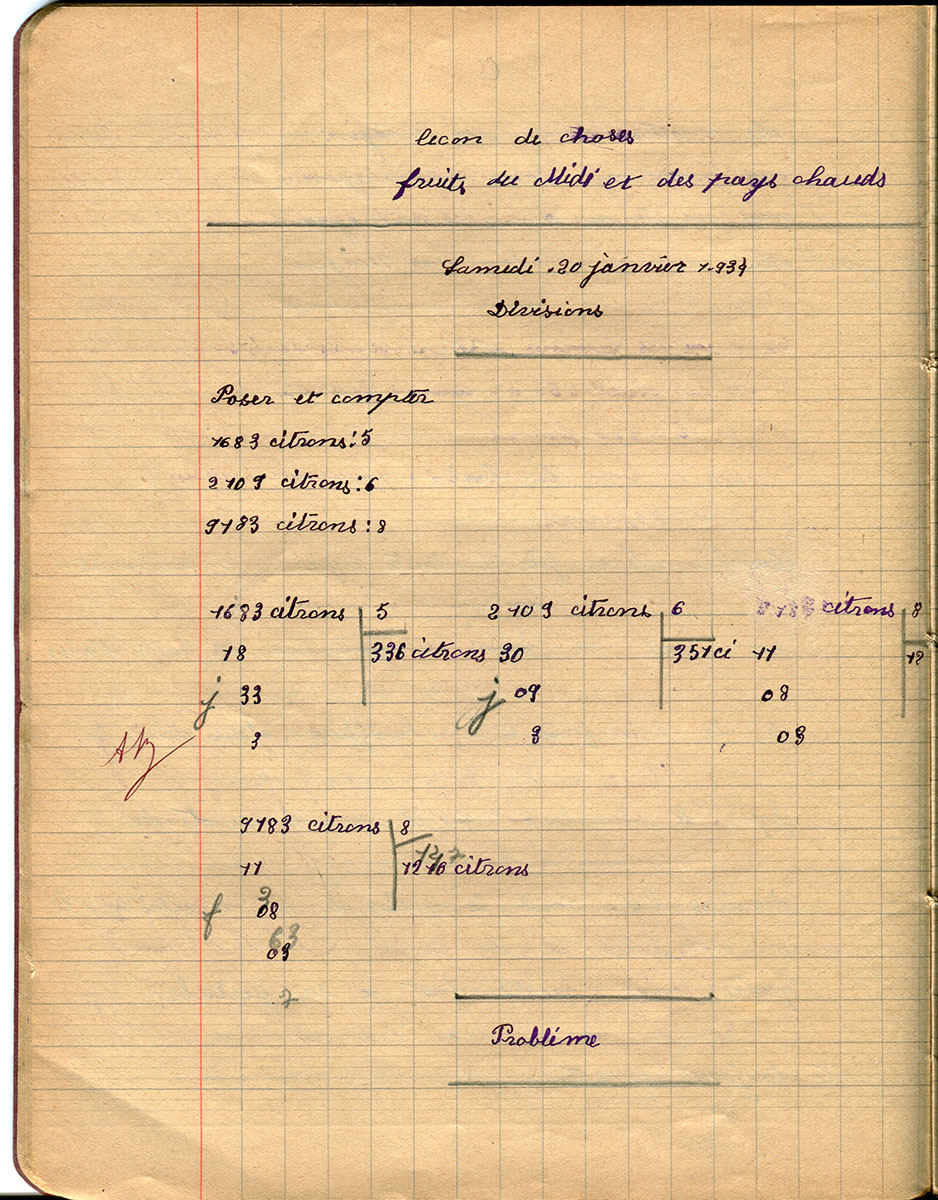 leçon de choses
fruits du Midi et des pays chauds
Samedi 20 janvier 1934
Divisions
Poser et compter
1683 citrons : 5
2109 citrons : 6
9183 citrons : 8
1683 citrons 5 2109 citrons 6 9183 citrons 8
18 336 citrons 30 351 ci 11 12
j 33 j 09 08
3 3 03
9183 citrons 8
11 1210 citrons
f 08
63
03
7
Problème